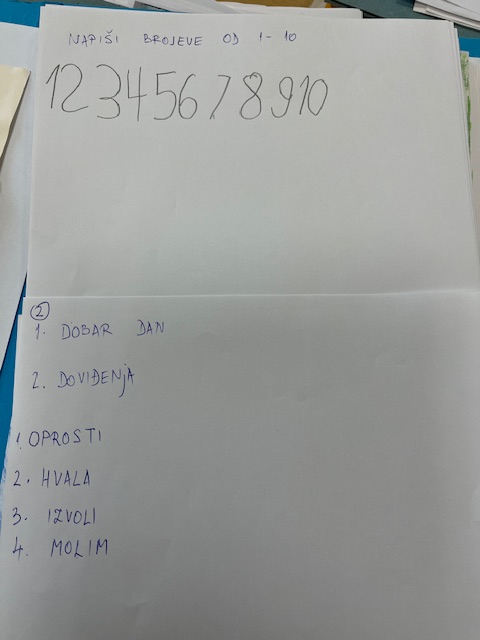 NAPIŠI BROJEVE OD 1-10
12345678910
2
1. DOBAR DAN
2. DOVIĐENjA
1. OPROSTI
2. HVALA
3. IZVOLI
4. MOLIM